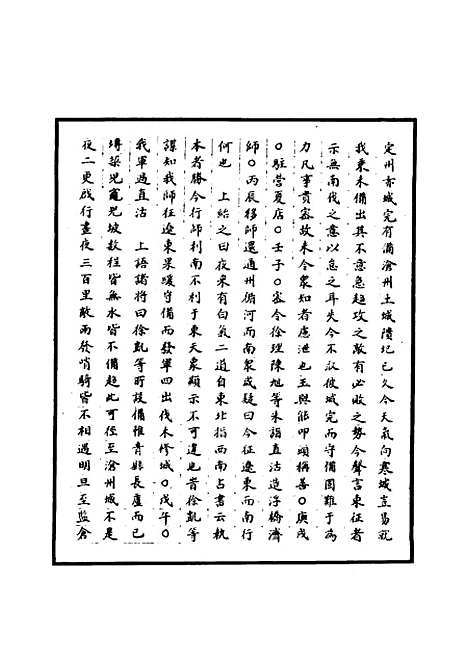 定州赤城完有備滄州土城潰圮已久今天氣向寒城豈易就
我乘未備出其不意急趨攻之敵有必敗之勢今聲言東征者
示無南伐之意以怠之耳失今不取彼城完而守備固難于為
力凡事貴密故未令衆知者慮泄也玉與能叩頭稱善○庚戌
○駐營夏店○壬子○密令徐理陳旭等朱詣直沽造浮橋濟
師○丙辰移師還通州循河而南衆或疑曰今征遼東而南行
何也　上紿之曰夜來有白氣二道自東北指西南占書云執
本者勝今行師利南不利于東天象顯示不可違也昔徐凱等
謀知我師征遼東果緩守備而發軍四出伐木修城○戊午○
我軍過直沽　上語諸將曰徐凱等所設備惟青縣長盧而已
塼垜兒竈兒坡數程皆無水皆不備趨此可徑至滄州城不是
夜二更啟行晝夜三百里敵兩發哨騎皆不相遇明旦至鹽倉